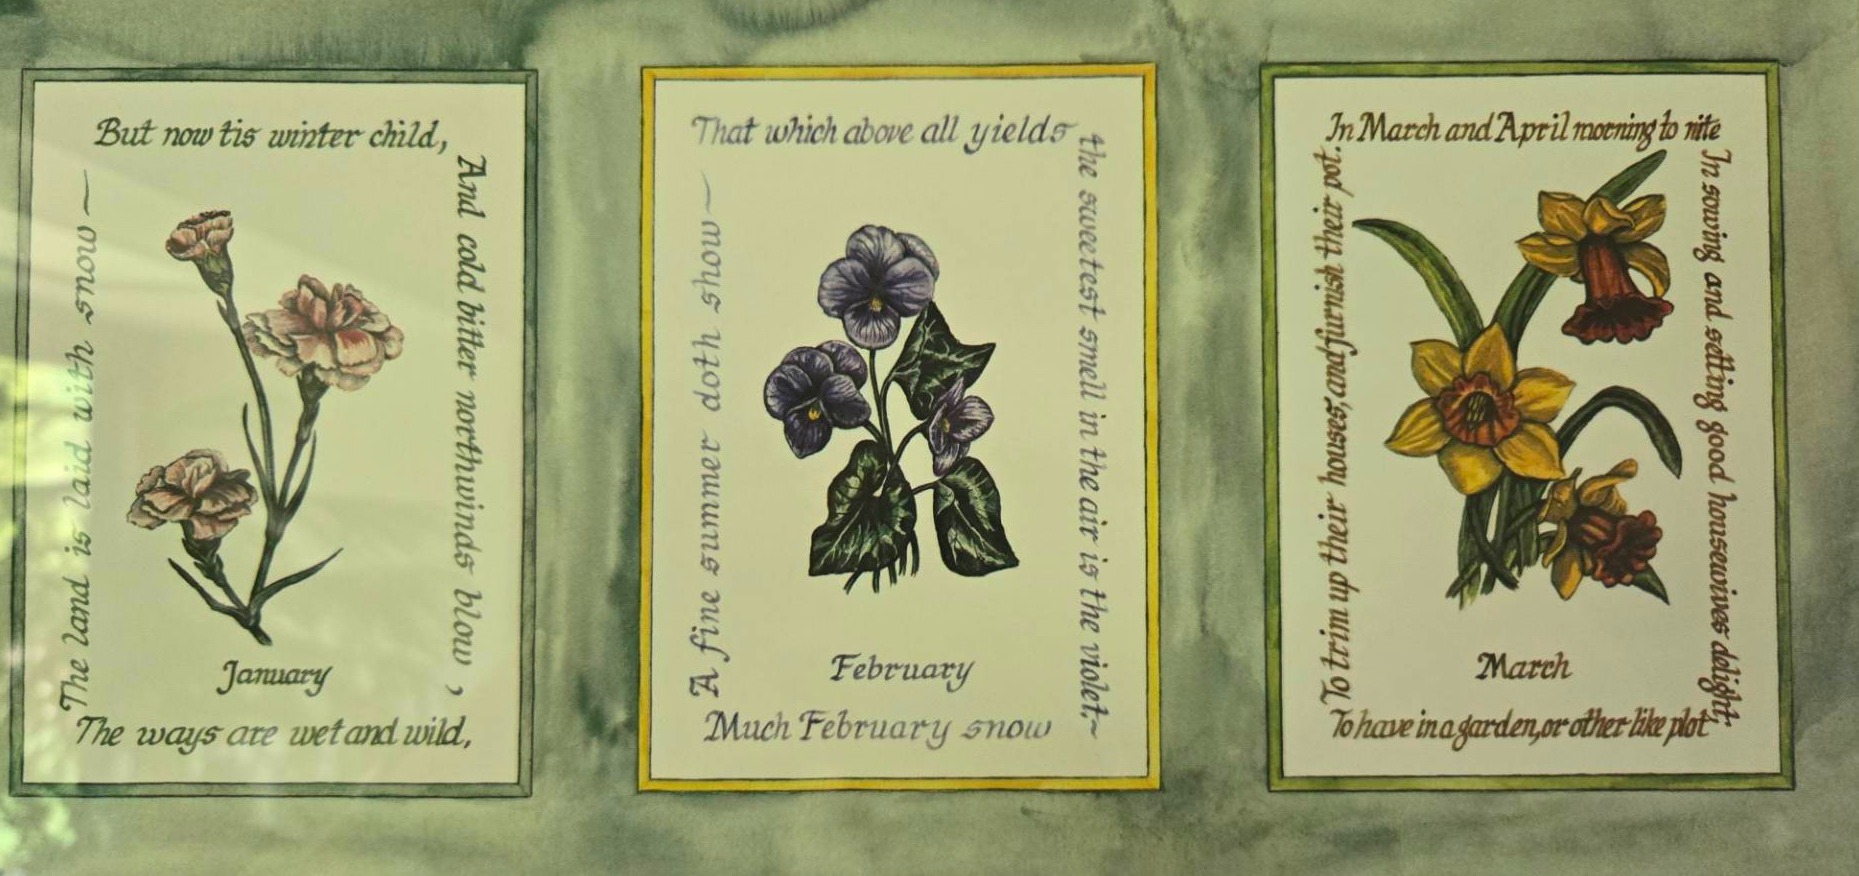 But now tis winter child,
And cold bitter northwinds blow,
The ways are wet and wild,
The land is laid with snow —
January
That which above all yields
the sweetest smell in the air is the violet.~
Much February snow
A fine summer doth show —
February
In March and April morning to nite
In sowing and setting good housewives delight;
To have in a garden, or other like plot
To trim up their houses, and furnish their pot.
March